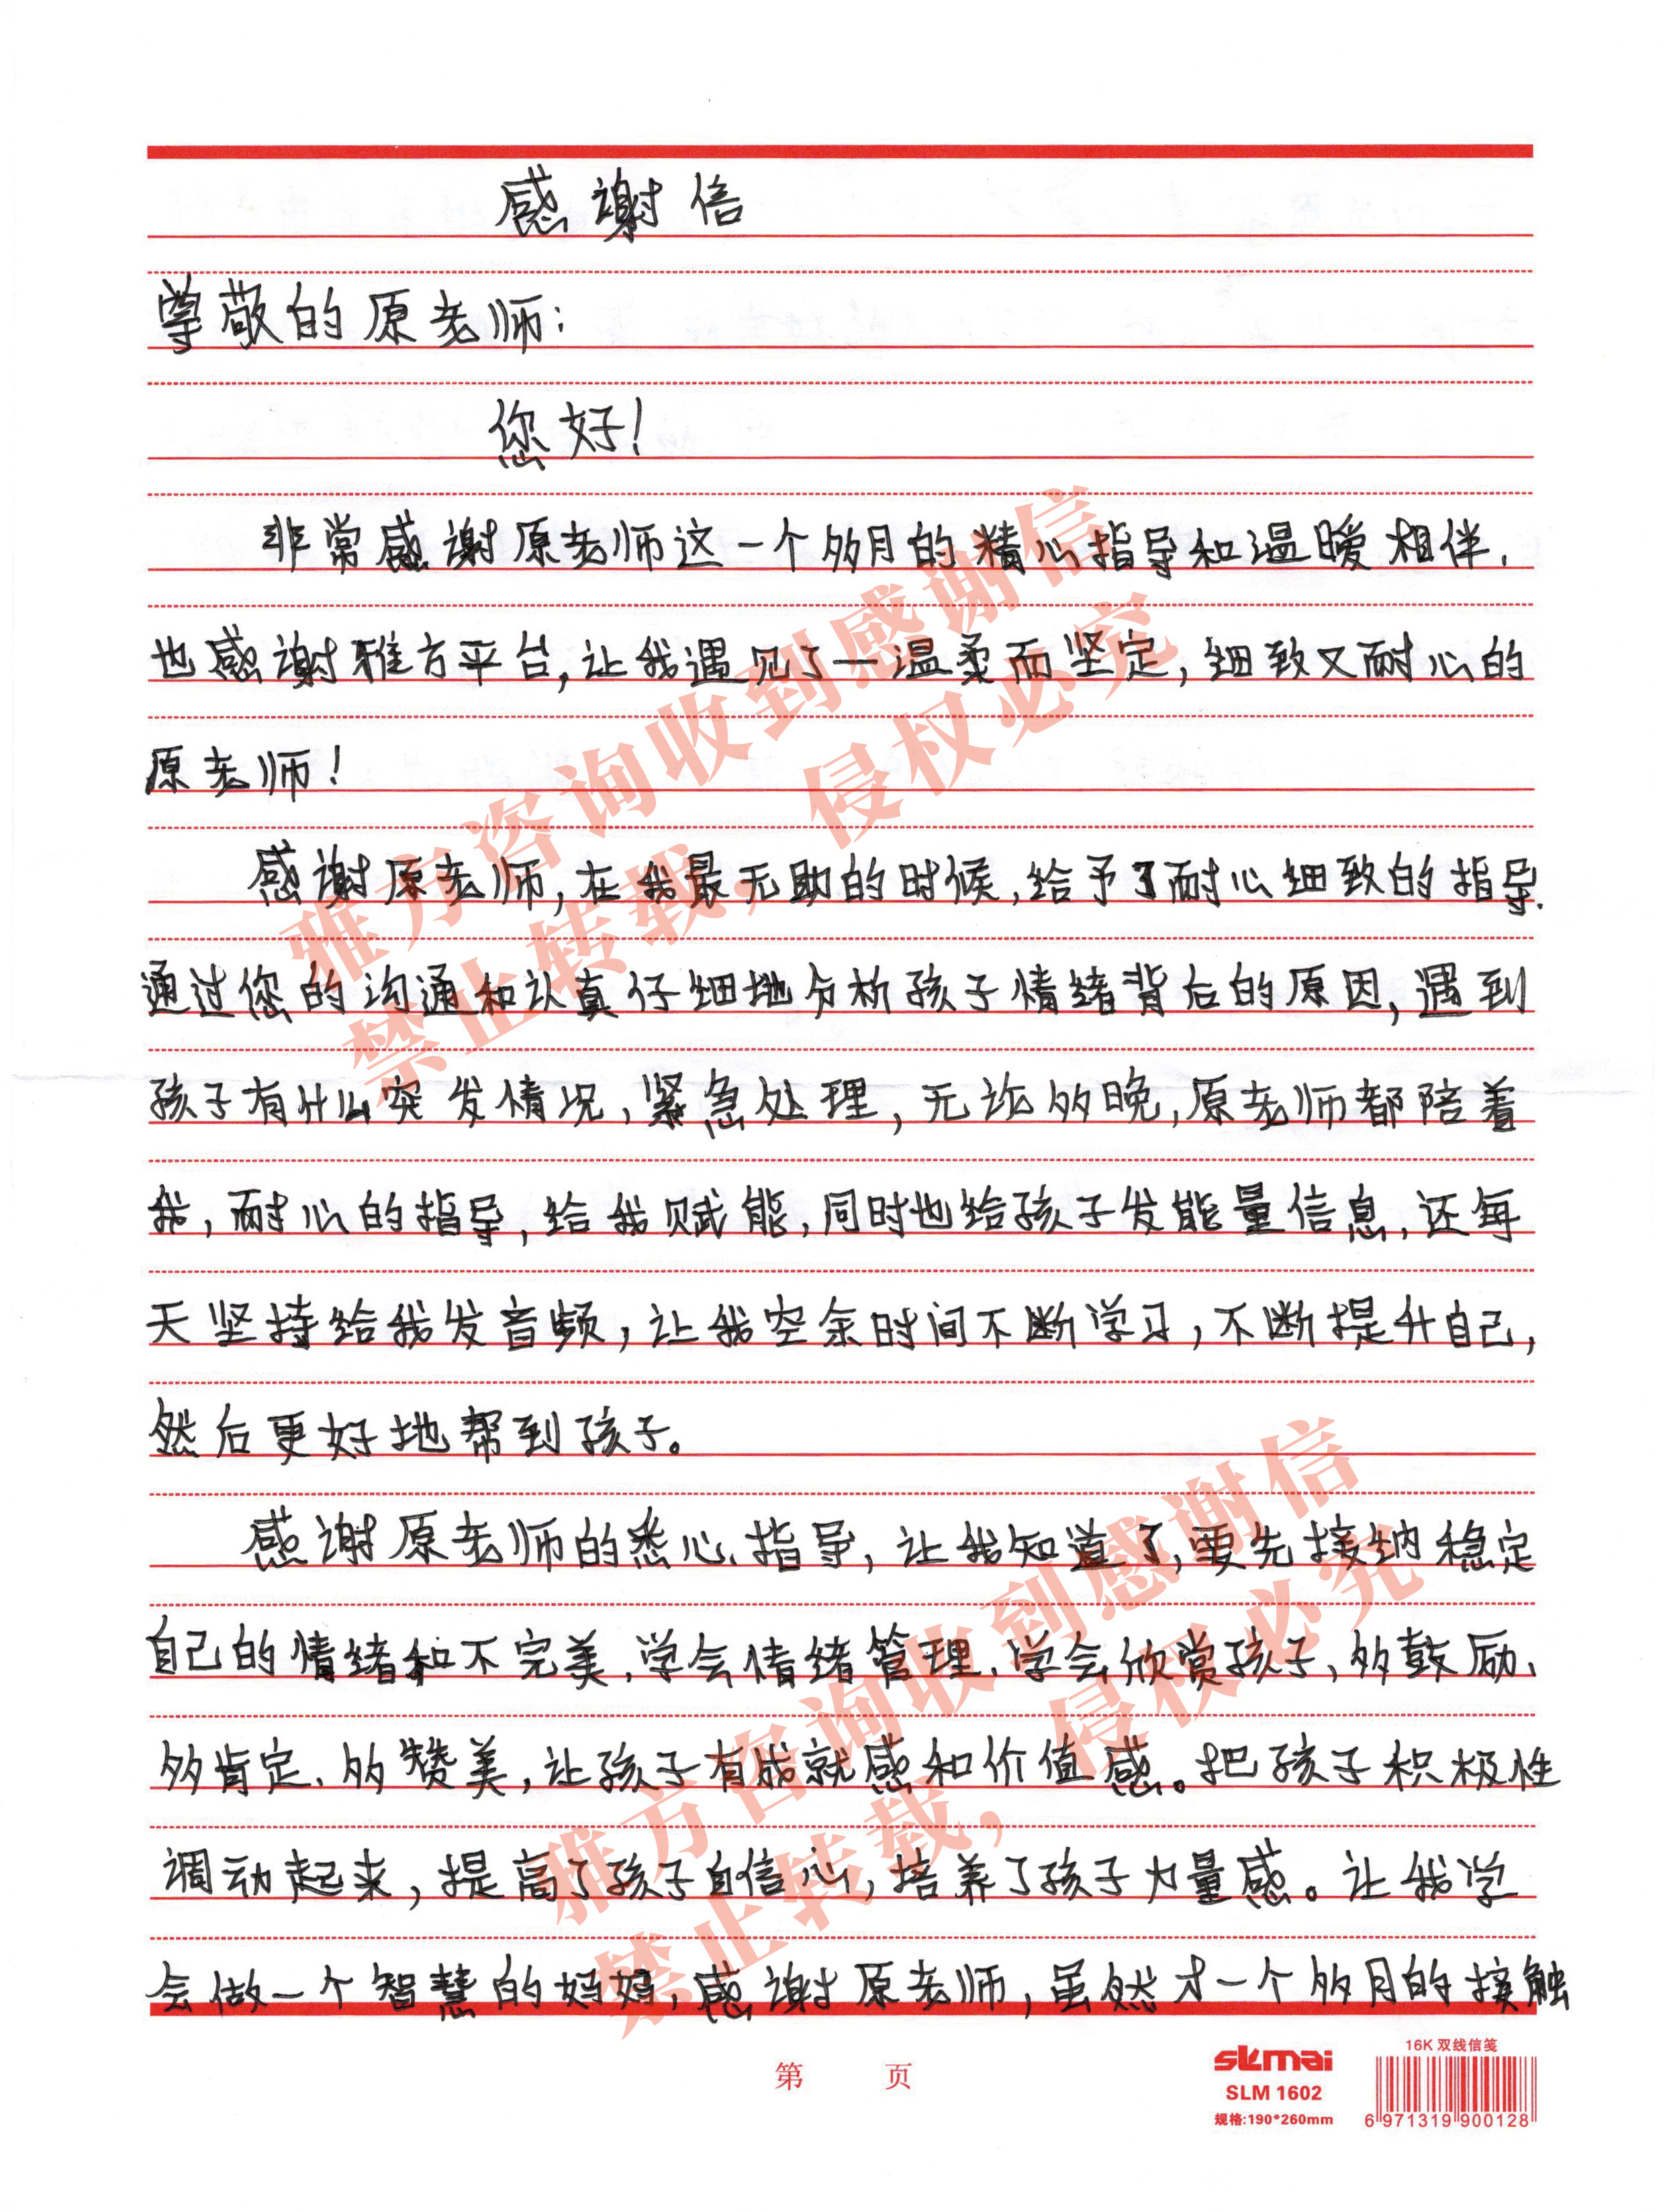 感谢信
尊敬的原老师:
您好!
非常感谢原老师这一个多月的精心指导和温暖相伴,
也感谢雅方平台,让我遇见了一温柔而坚定,细致又耐心的
原老师!
感谢原老师,在我最无助的时候,给予了耐心细致的指导.
通过您的沟通和认真仔细地分析孩子情绪背后的原因,遇到
孩子有什么突发情况,紧急处理,无论多晚,原老师都陪着
我,耐心的指导,给我赋能,同时也给孩子发能量信息,还每
天坚持给我发音频,让我空余时间不断学习,不断提升自己,
然后更好地帮到孩子。
感谢原老师的悉心指导,让我知道了,要先接纳稳定
自己的情绪和不完美,学会情绪管理.学会欣赏孩子,多鼓励、
多肯定、多赞美,让孩子有成就感和价值感。把孩子积极性
调动起来,提高了孩子自信心,培养了孩子力量感。让我学
会做一个智慧的妈妈,感谢原老师,虽然才一个多月的接触
雅方咨询收到感谢信
禁止转载,侵权必究
雅方咨询收到感谢信
禁止转载,侵权必究
第 页
slmai
SLM 1602
规格:190*260mm
16K 双线信笺
6 971319 900128